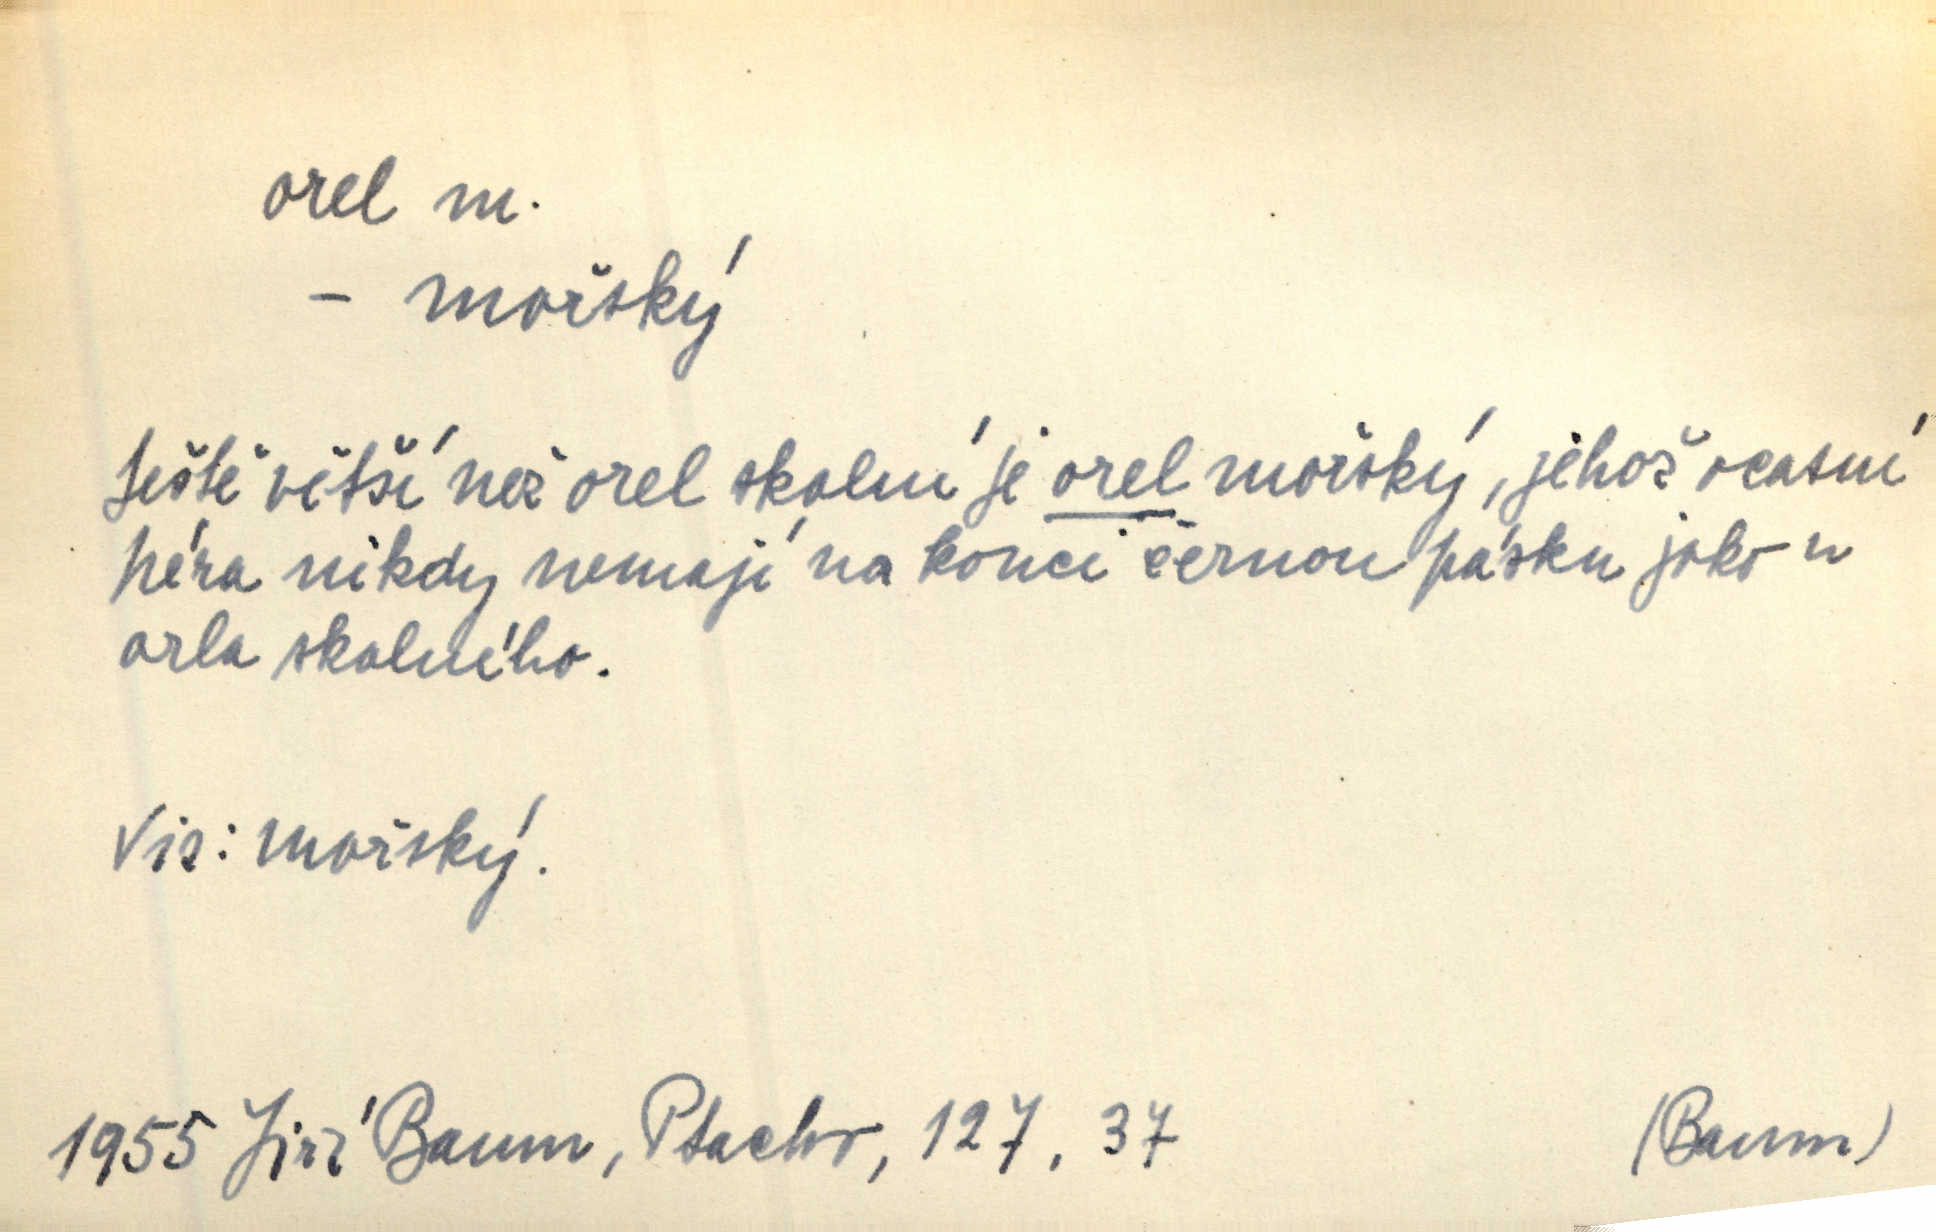 orel m.
– mořský
Ještě větší než orel skalní je orel mořský, jehož ocasní
péra nikdy nemají na konci černou pásku jako u
orla skalního.
Viz: mořský.
1955 Jiří Baum, Ptactvo, 127, 37 (Baum)